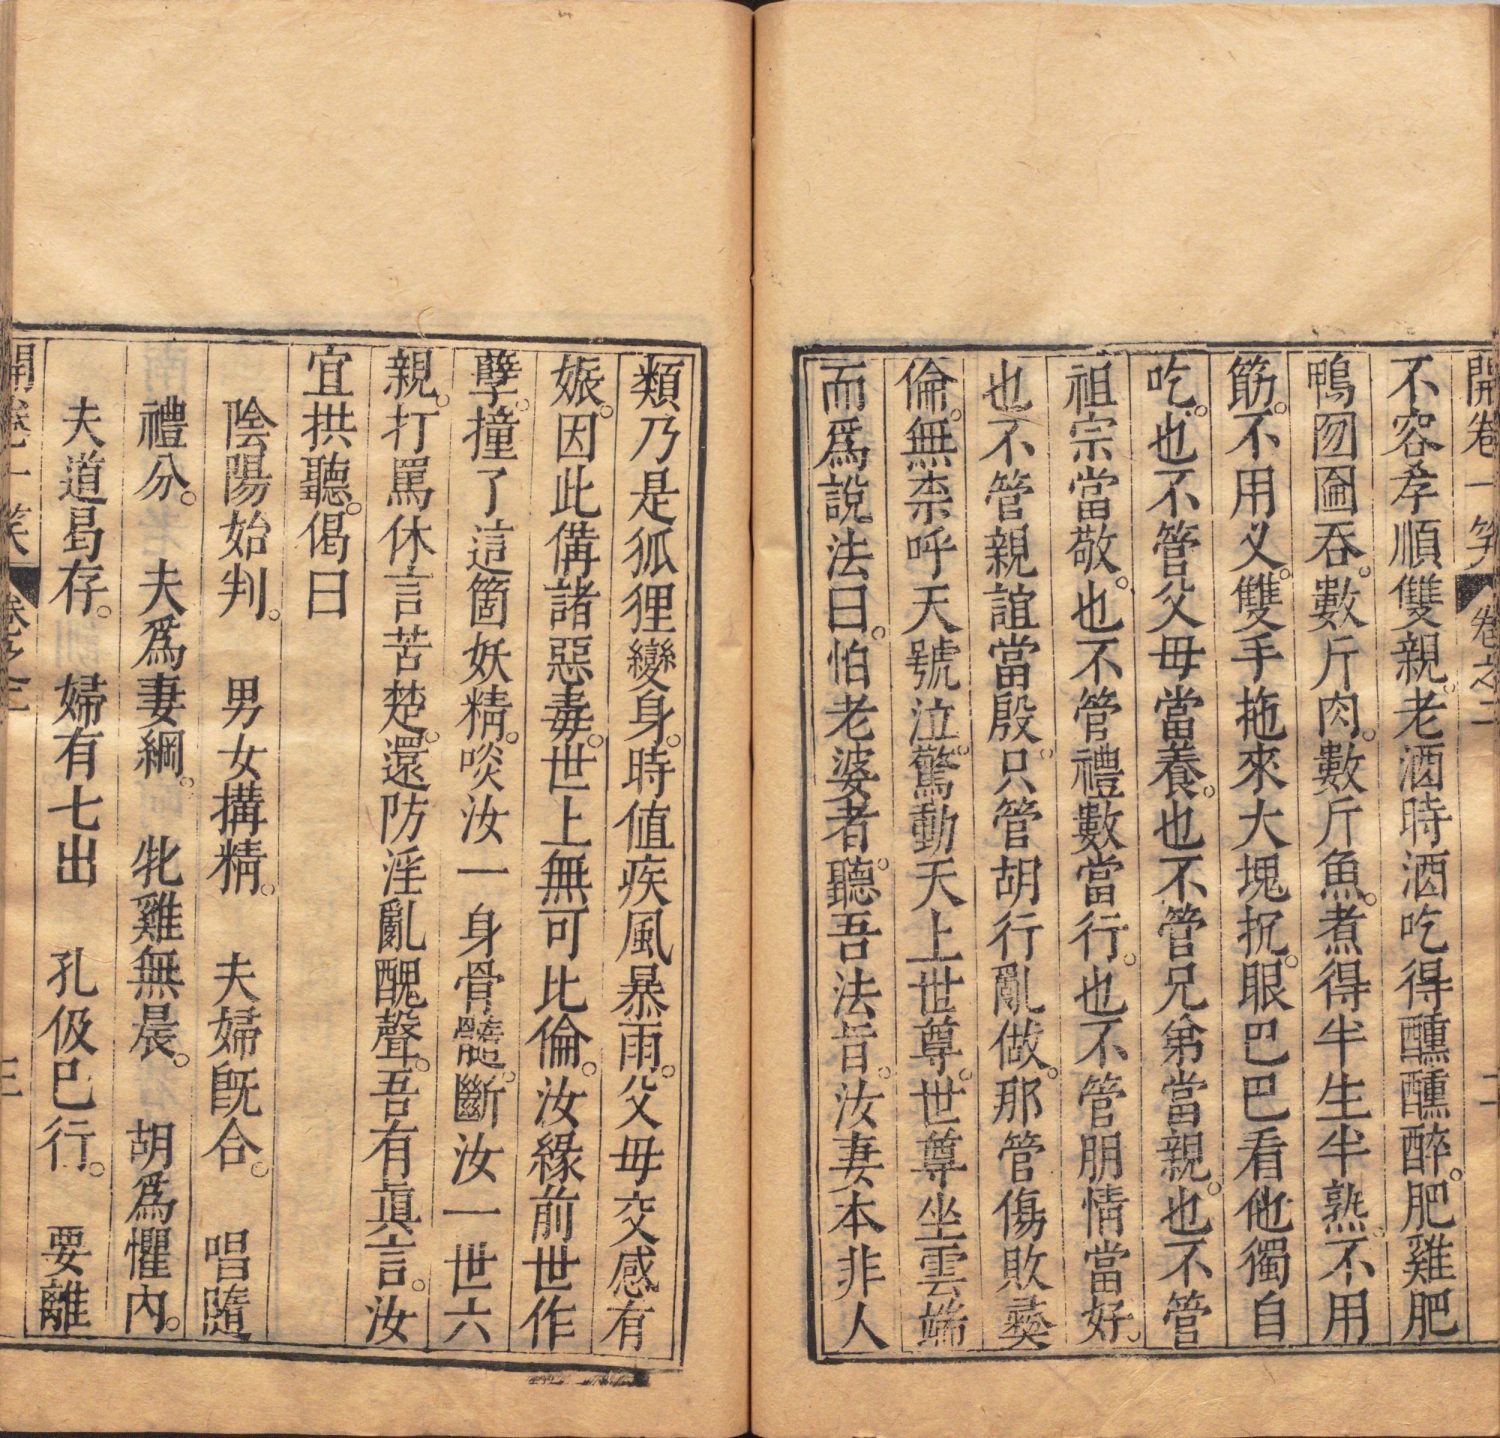 開卷一笑 卷之二 二
不容孝順雙親老酒時酒吃得醺醺醉。肥雞肥
鴨囫圇吞。數斤肉。數斤魚。煮得半生半熟。不用
筯。不用义。雙手拖來大塊抓。眼巴巴看他獨自
吃。也不管父母當養。也不管兄弟當親。也不管
祖宗當敬。也不管禮數當行。也不管朋情當好。
也不管親誼當殷。只管胡行亂做。那管傷敗彞
倫。無柰呼天號泣。驚動天上世尊。世尊坐雲端
而爲說法曰。怕老婆者聽。吾法旨。汝妻本非人
類乃是狐狸變身。時值疾風暴雨。父母交感有
娠。因此備諸惡毒。世上無可比倫。汝緣前世作
孽。撞了這箇妖精。啖汝一身骨髓。斷汝一世六
親。打罵休言苦楚。還防淫亂醜聲。吾有眞言。汝
宜拱聽。偈曰
陰陽始判。 男女搆精。 夫婦旣合。 唱隨
禮分。 夫爲妻綱。 牝雞無晨。 胡爲懼內。
夫道曷存。 婦有七出 孔伋已行。 要離
開卷一笑 卷之二 三